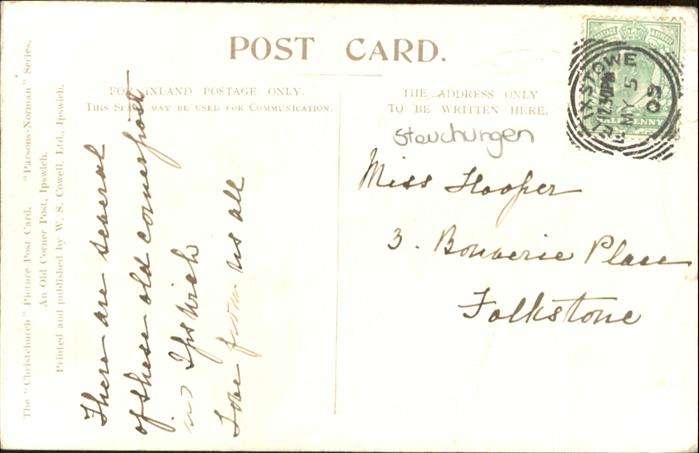 The "Christchurch" Picture Post Card. "Parsons-Norman" Series.
An Old Corner Post, Ipswich.
Printed and published by W. S. Cowell, Ltd., Ipswich.
POST CARD.
FOR INLAND POSTAGE ONLY.
THIS SPACE MAY BE USED FOR COMMUNICATION.
There are several
of these old cornerposts
in Ipswich
Love from us all
THE ADDRESS ONLY
TO BE WRITTEN HERE.
Miss Hooper
3. Bouverie Place
Folkstone
FELIXSTOWE
MY 5
05
HALFPENNY